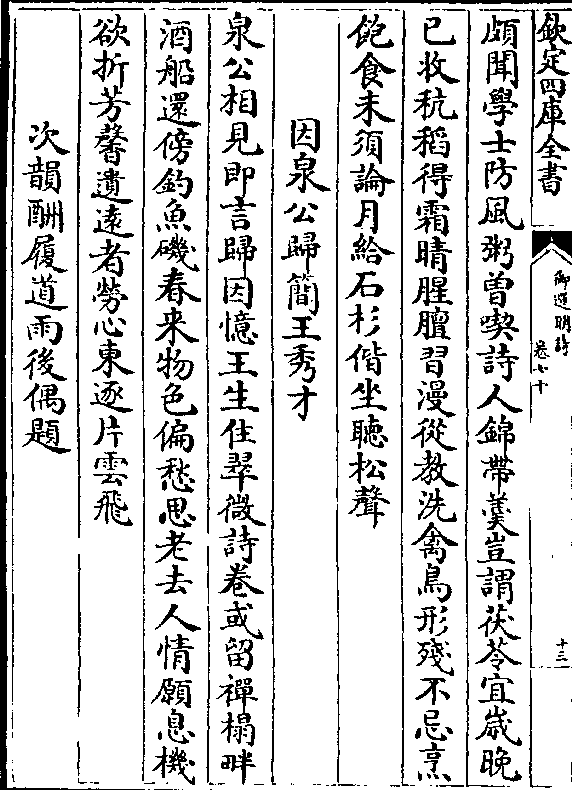 欽定四庫全書
御選明詩
卷七十
十三
頗聞學士防風粥曽喫詩人錦帶羮豈謂茯苓宜嵗晚
已收秔稻得霜晴腥膻習漫從教洗禽鳥形殘不忌烹
飽食未須論月給石杉偕坐聽松聲
因泉公歸簡王秀才
泉公相見即言歸因憶王生住翠微詩卷或留禪榻畔
酒船還傍釣魚磯春来物色偏愁思老去人情願息機
欲折芳馨遺遠者勞心東逐片雲飛
次韻酬履道雨後偶題